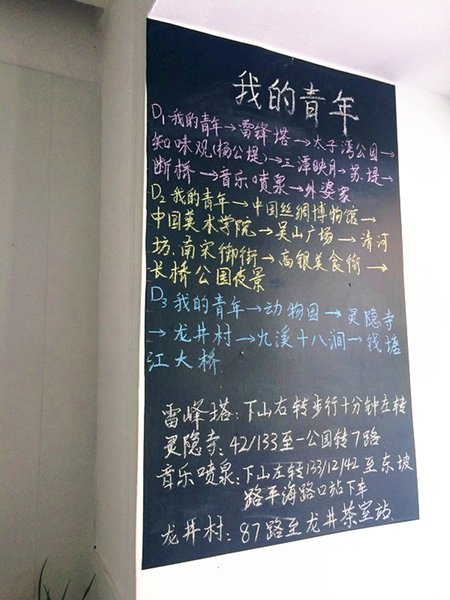 我的青年
D1 我的青年→雷锋塔→太子湾公园→
知味观(杨公堤)→三潭映月→苏堤→
断桥→音乐喷泉→外婆家
D2 我的青年→中国丝绸博物馆→
中国美术学院→吴山广场→清河
坊.南宋御街→高银美食街→
长桥公园夜景
D3 我的青年→动物园→灵隐寺
→龙井村→九溪十八涧→钱塘
江大桥
雷峰塔:下山右转步行十分钟左转
灵隐寺:42/133至一公园转7路
音乐喷泉:下山左转133/12/42至东坡
路平海路口站下车
龙井村:87路至龙井茶室站